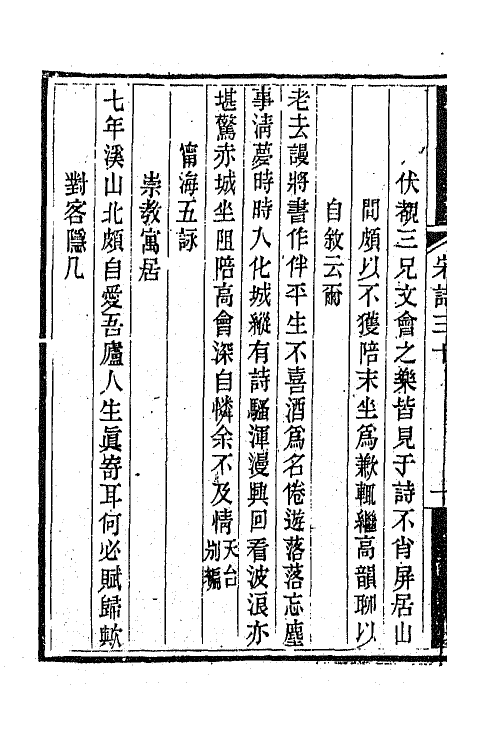 宋詩三十
伏覩三兄文會之樂皆見于詩不肖屏居山
間頗以不獲陪末坐爲歉輒繼高韻聊以
自敘云爾
老去謾將書作伴平生不喜酒爲名倦遊落落忘塵
事淸夢時時入化城縱有詩騷渾漫興回看波浪亦
堪驚赤城坐阻陪高會深自憐余不及情天台別編
甯海五詠
崇教寓居
七年溪山北頗自愛吾廬人生眞寄耳何必賦歸歟
對客隱几